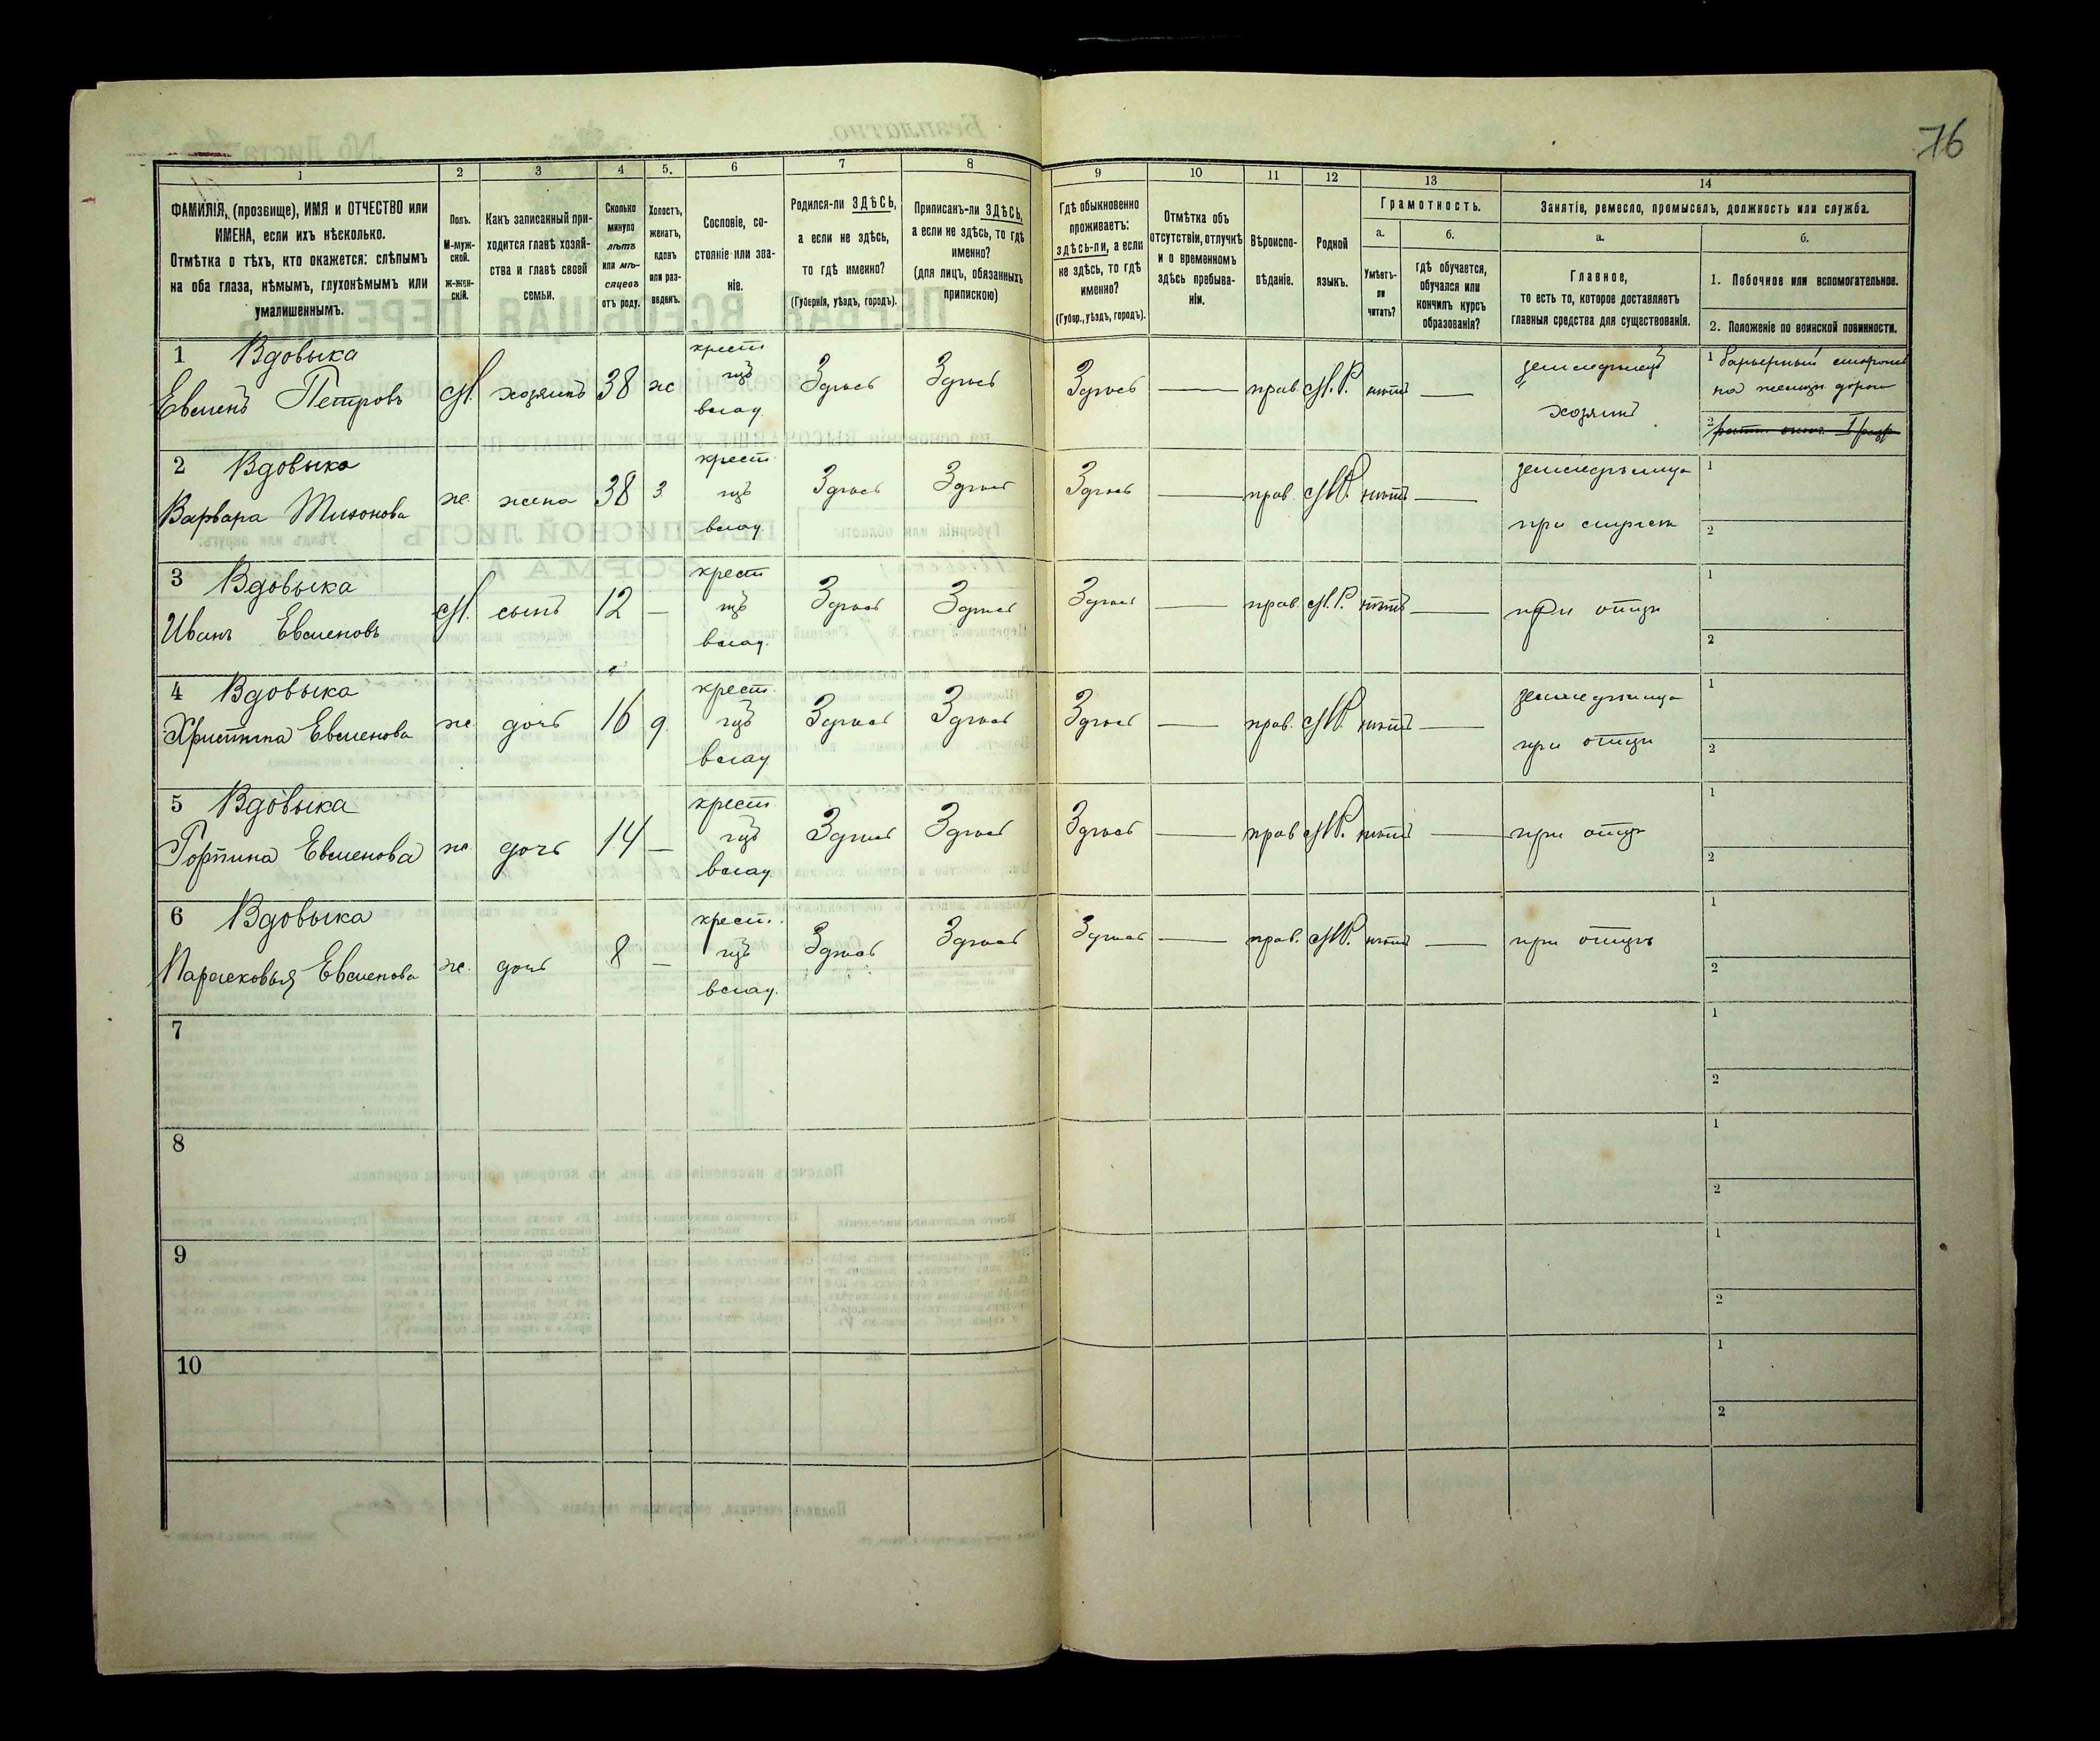 76
1
2
3
4
5.
6
7
8
9
10
11
12
13
14
ФАМИЛІЯ, (прозвище), ИМЯ и ОТЧЕСТВО или
ИМЕНА, если ихъ нѣсколько.
Отмѣтка о тѣхъ, кто окажется: слѣпымъ
на оба глаза, нѣмымъ, глухонѣмымъ или
умалишеннымъ.
Полъ.
М-муж-
ской.
Ж-жен-
скій.
Какъ записанный при-
ходится главѣ хозяй-
ства и главѣ своей
семьи.
Сколько
минуло
лѣтъ
или мѣ-
сяцевъ
отъ роду.
Холостъ,
женатъ,
вдовъ
или раз-
веденъ.
Сословіе, со-
стояніе или зва-
ніе.
Родился-ли ЗДѢСЬ,
а если не здѣсь,
то гдѣ именно?
(Губернія, уѣздъ, городъ).
Приписанъ-ли ЗДѢСЬ,
а если не здѣсь, то гдѣ
именно?
(для лицъ, обязанныхъ
припискою)
Гдѣ обыкновенно
проживаетъ:
здѣсь-ли, а если
не здѣсь, то гдѣ
именно?
(Губер., уѣздъ, городъ).
Отмѣтка объ
отсутствіи, отлучкѣ
и о временномъ
здѣсь пребыва-
ніи.
Вѣроиспо-
вѣданіе.
Родной
языкъ.
Грамотность.
а.
Умѣетъ-
ли
читать?
б.
гдѣ обучается,
обучался или
кончилъ курсъ
образованія?
Занятіе, ремесло, промыселъ, должность или служба.
а.
Главное,
то есть то, которое доставляетъ
главныя средства для существованія.
б.
1. Побочное или вспомогательное.
2. Положеніе по воинской повинности.
1 Вдовыка
Евменъ Петровъ
М.
хозяинъ
38
ж
крест.
изъ
влад.
Здѣсь
Здѣсь
Здѣсь
—
прав.
М.Р.
нѣтъ
—
земледѣлецъ
хозяинъ
1 барьерный сторожъ
на желѣзн. дорогѣ
2
2 Вдовыка
Варвара Тихонова
ж.
жена
38
з
крест.
изъ
влад.
Здѣсь
Здѣсь
Здѣсь
—
прав.
М.Р.
нѣтъ
—
земледѣлица
1
2
3 Вдовыка
Иванъ Евменовъ
М.
сынъ
12
—
крест
изъ
влад.
Здѣсь
Здѣсь
Здѣсь
—
прав.
М.Р.
нѣтъ
—
при отцѣ
1
2
4 Вдовыка
Христина Евменова
ж.
дочь
16
д.
крест.
изъ
влад.
Здѣсь
Здѣсь
Здѣсь
—
прав.
М.Р.
нѣтъ
—
земледѣлица
при отцѣ
1
2
5 Вдовыка
Горпина Евменова
ж.
дочь
14
—
крест.
изъ
влад.
Здѣсь
Здѣсь
Здѣсь
—
прав.
М.Р.
нѣтъ
—
при отцѣ
1
2
6 Вдовыка
Парасковья Евменова
ж.
дочь
8
—
крест.
изъ
влад.
Здѣсь
Здѣсь
Здѣсь
—
прав.
М.Р.
нѣтъ
—
при отцѣ
1
2
7
1
2
8
1
2
9
1
2
10
1
2